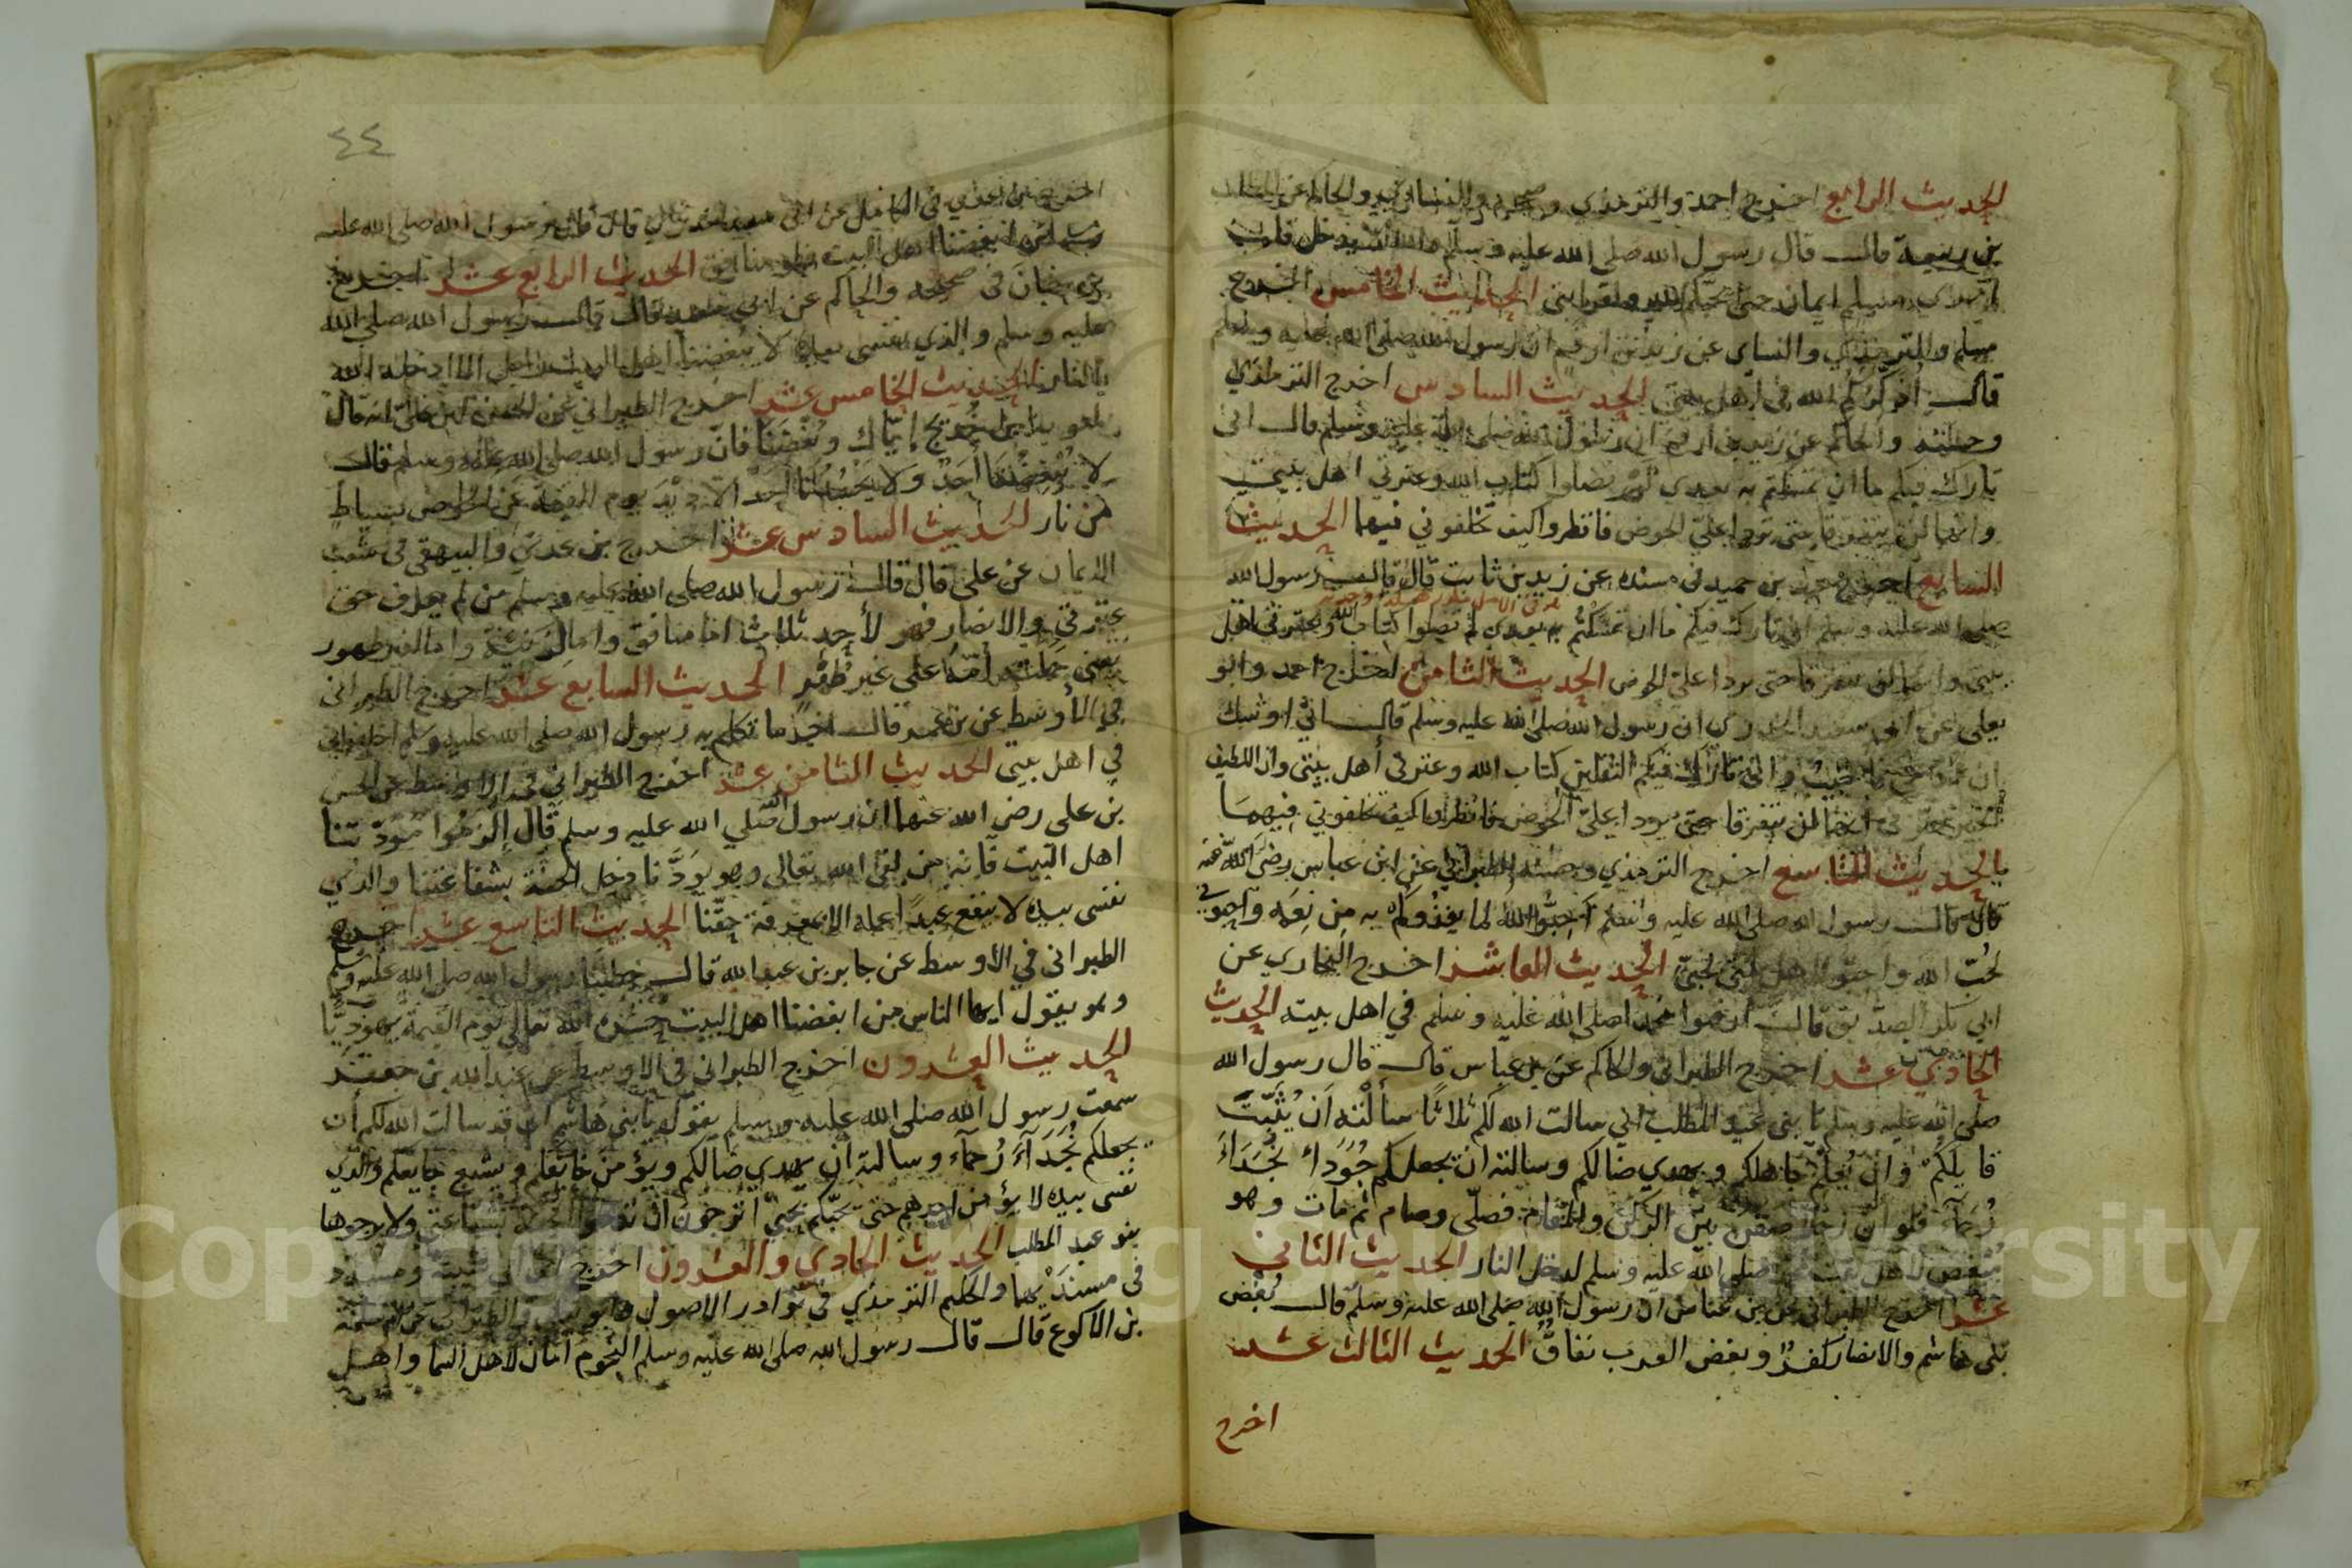 الحديث الرابع اخرج احمد والترمذي وصححه والنسائي والحاكم عن المطلب
بن ربيعة قال قال رسول الله صلى الله عليه وسلم والله لا يدخل قلب
امرئ مسلم ايمان حتى يحبكم لله ولقرابتي الحديث الخامس اخرج
مسلم والترمذي والنساي عن زيد بن ارقم ان رسول الله صلى الله عليه وسلم
قال اذكركم الله في اهل بيتي الحديث السادس اخرج الترمذي
وحسنه والحاكم عن زيد بن ارقم ان رسول الله صلى الله عليه وسلم قال اني
تارك فيكم ما ان تمسكتم به بعدي لن تضلوا كتاب الله وعترتي اهل بيتي
وانهما لن يتفرقا حتى يردا علي الحوض فانظروا كيف تخلفوني فيهما الحديث
السابع اخرج عبد بن حميد في مسنده عن زيد بن ثابت قال قال رسول الله
صلى الله عليه وسلم اني تارك فيكم ما ان تمسكتم به بعدي لم تضلوا كتاب الله وعترتي اهل
بيتي وانهما لن يتفرقا حتى يردا علي الحوض الحديث الثامن اخرج احمد وابو
يعلى عن ابي سعيد الخدري ان رسول الله صلى الله عليه وسلم قال اني اوشك
ان ادعى فاجيب واني تارك فيكم الثقلين كتاب الله وعترتي أهل بيتي وان اللطيف
الخبير خبرني انهما لن يتفرقا حتى يردا علي الحوض فانظروا كيف تخلفوني فيهما
الحديث التاسع اخرج الترمذي وحسنه والطبراني عن ابن عباس رضي الله عنه
قال قال رسول الله صلى الله عليه وسلم أحبوا الله لما يغذوكم به من نعمه واحبوني
لحب الله واحبوا اهل بيتي لحبي الحديث العاشر اخرج البخاري عن
ابي بكر الصديق قال ارقبوا محمدا صلى الله عليه وسلم في اهل بيته الحديث
الحادي عشر اخرج الطبراني والحاكم عن بن عباس قال قال رسول الله
صلى الله عليه وسلم يا بني عبد المطلب اني سالت الله لكم ثلاثا سألته أن يثبت
قايلكم وان يعلم جاهلكم ويهدي ضالكم وسالته ان يجعلكم جوداء نجداء
رحماء فلو ان رجلا صفن بين الركن والمقام فصلى وصام ثم مات وهو
مبغض لاهل بيت محمد صلى الله عليه وسلم لدخل النار الحديث الثاني
عشر اخرج الطبراني عن بن عباس ان رسول الله صلى الله عليه وسلم قال بغض
بني هاشم والانصار كفر وبغض العرب نفاق الحديث الثالث عشر
اخرج
٤٤
اخرج بن عدي في الكامل عن ابي سعيد الخدري قال قال رسول الله صلى الله عليه
وسلم من ابغضنا اهل البيت فهو منافق الحديث الرابع عشر اخرج
بن حبان في صحيحه والحاكم عن ابي سعيد قال قال رسول الله صلى الله
عليه وسلم والذي نفسي بيده لا يبغضنا اهل البيت رجل الا ادخله الله
النار الحديث الخامس عشر اخرج الطبراني عن الحسن بن علي انه قال
لمعوية بن خديج إياك وبغضنا فان رسول الله صلى الله عليه وسلم قال
لا يبغضنا أحد ولا يحسدنا أحد الا ذيد يوم القيمة عن الحوض بسياط
من نار الحديث السادس عشر اخرج بن عدي والبيهقي في شعب
الايمان عن علي قال قال رسول الله صلى الله عليه وسلم من لم يعرف حق
عترتي والانصار فهو لأحد ثلاث اما منافق واما لزنية واما لغير طهور
يعني حملته أمه على غير طهر الحديث السابع عشر اخرج الطبراني
في الأوسط عن بن عمر قال اخر ما تكلم به رسول الله صلى الله عليه وسلم اخلفوني
في اهل بيتي الحديث الثامن عشر اخرج الطبراني في الاوسط عن الحسن
بن علي رضي الله عنهما ان رسول الله صلى الله عليه وسلم قال إلزموا مودتنا
اهل البيت فانه من لقي الله تعالى وهو يودنا دخل الجنة بشفاعتنا والذي
نفسي بيده لا ينفع عبدا عمله الا بمعرفة حقنا الحديث التاسع عشر اخرج
الطبراني في الأوسط عن جابر بن عبد الله قال خطبنا رسول الله صلى الله عليه وسلم
وهو يقول ايها الناس من ابغضنا اهل البيت حشره الله تعالى يوم القيمة يهوديا
الحديث العشرون اخرج الطبراني في الاوسط عن عبد الله بن جعفر
سمعت رسول الله صلى الله عليه وسلم يقول يا بني هاشم اني قد سالت الله لكم أن
يجعلكم نجداء رحماء وسالته أن يهدي ضالكم ويؤمن خائفكم ويشبع جايعكم والذي
نفسي بيده لا يؤمن احدهم حتى يحبكم بحبي أترجون ان تدخلوا الجنة بشفاعتي ولا يرجوها
بنو عبد المطلب الحديث الحادي والعشرون اخرج بن ابي شيبة ومسدد
في مسنديهما والحكيم الترمذي في نوادر الاصول وابو يعلى والطبراني عن سلمة
بن الأكوع قال قال رسول الله صلى الله عليه وسلم النجوم أمان لاهل السما واهل